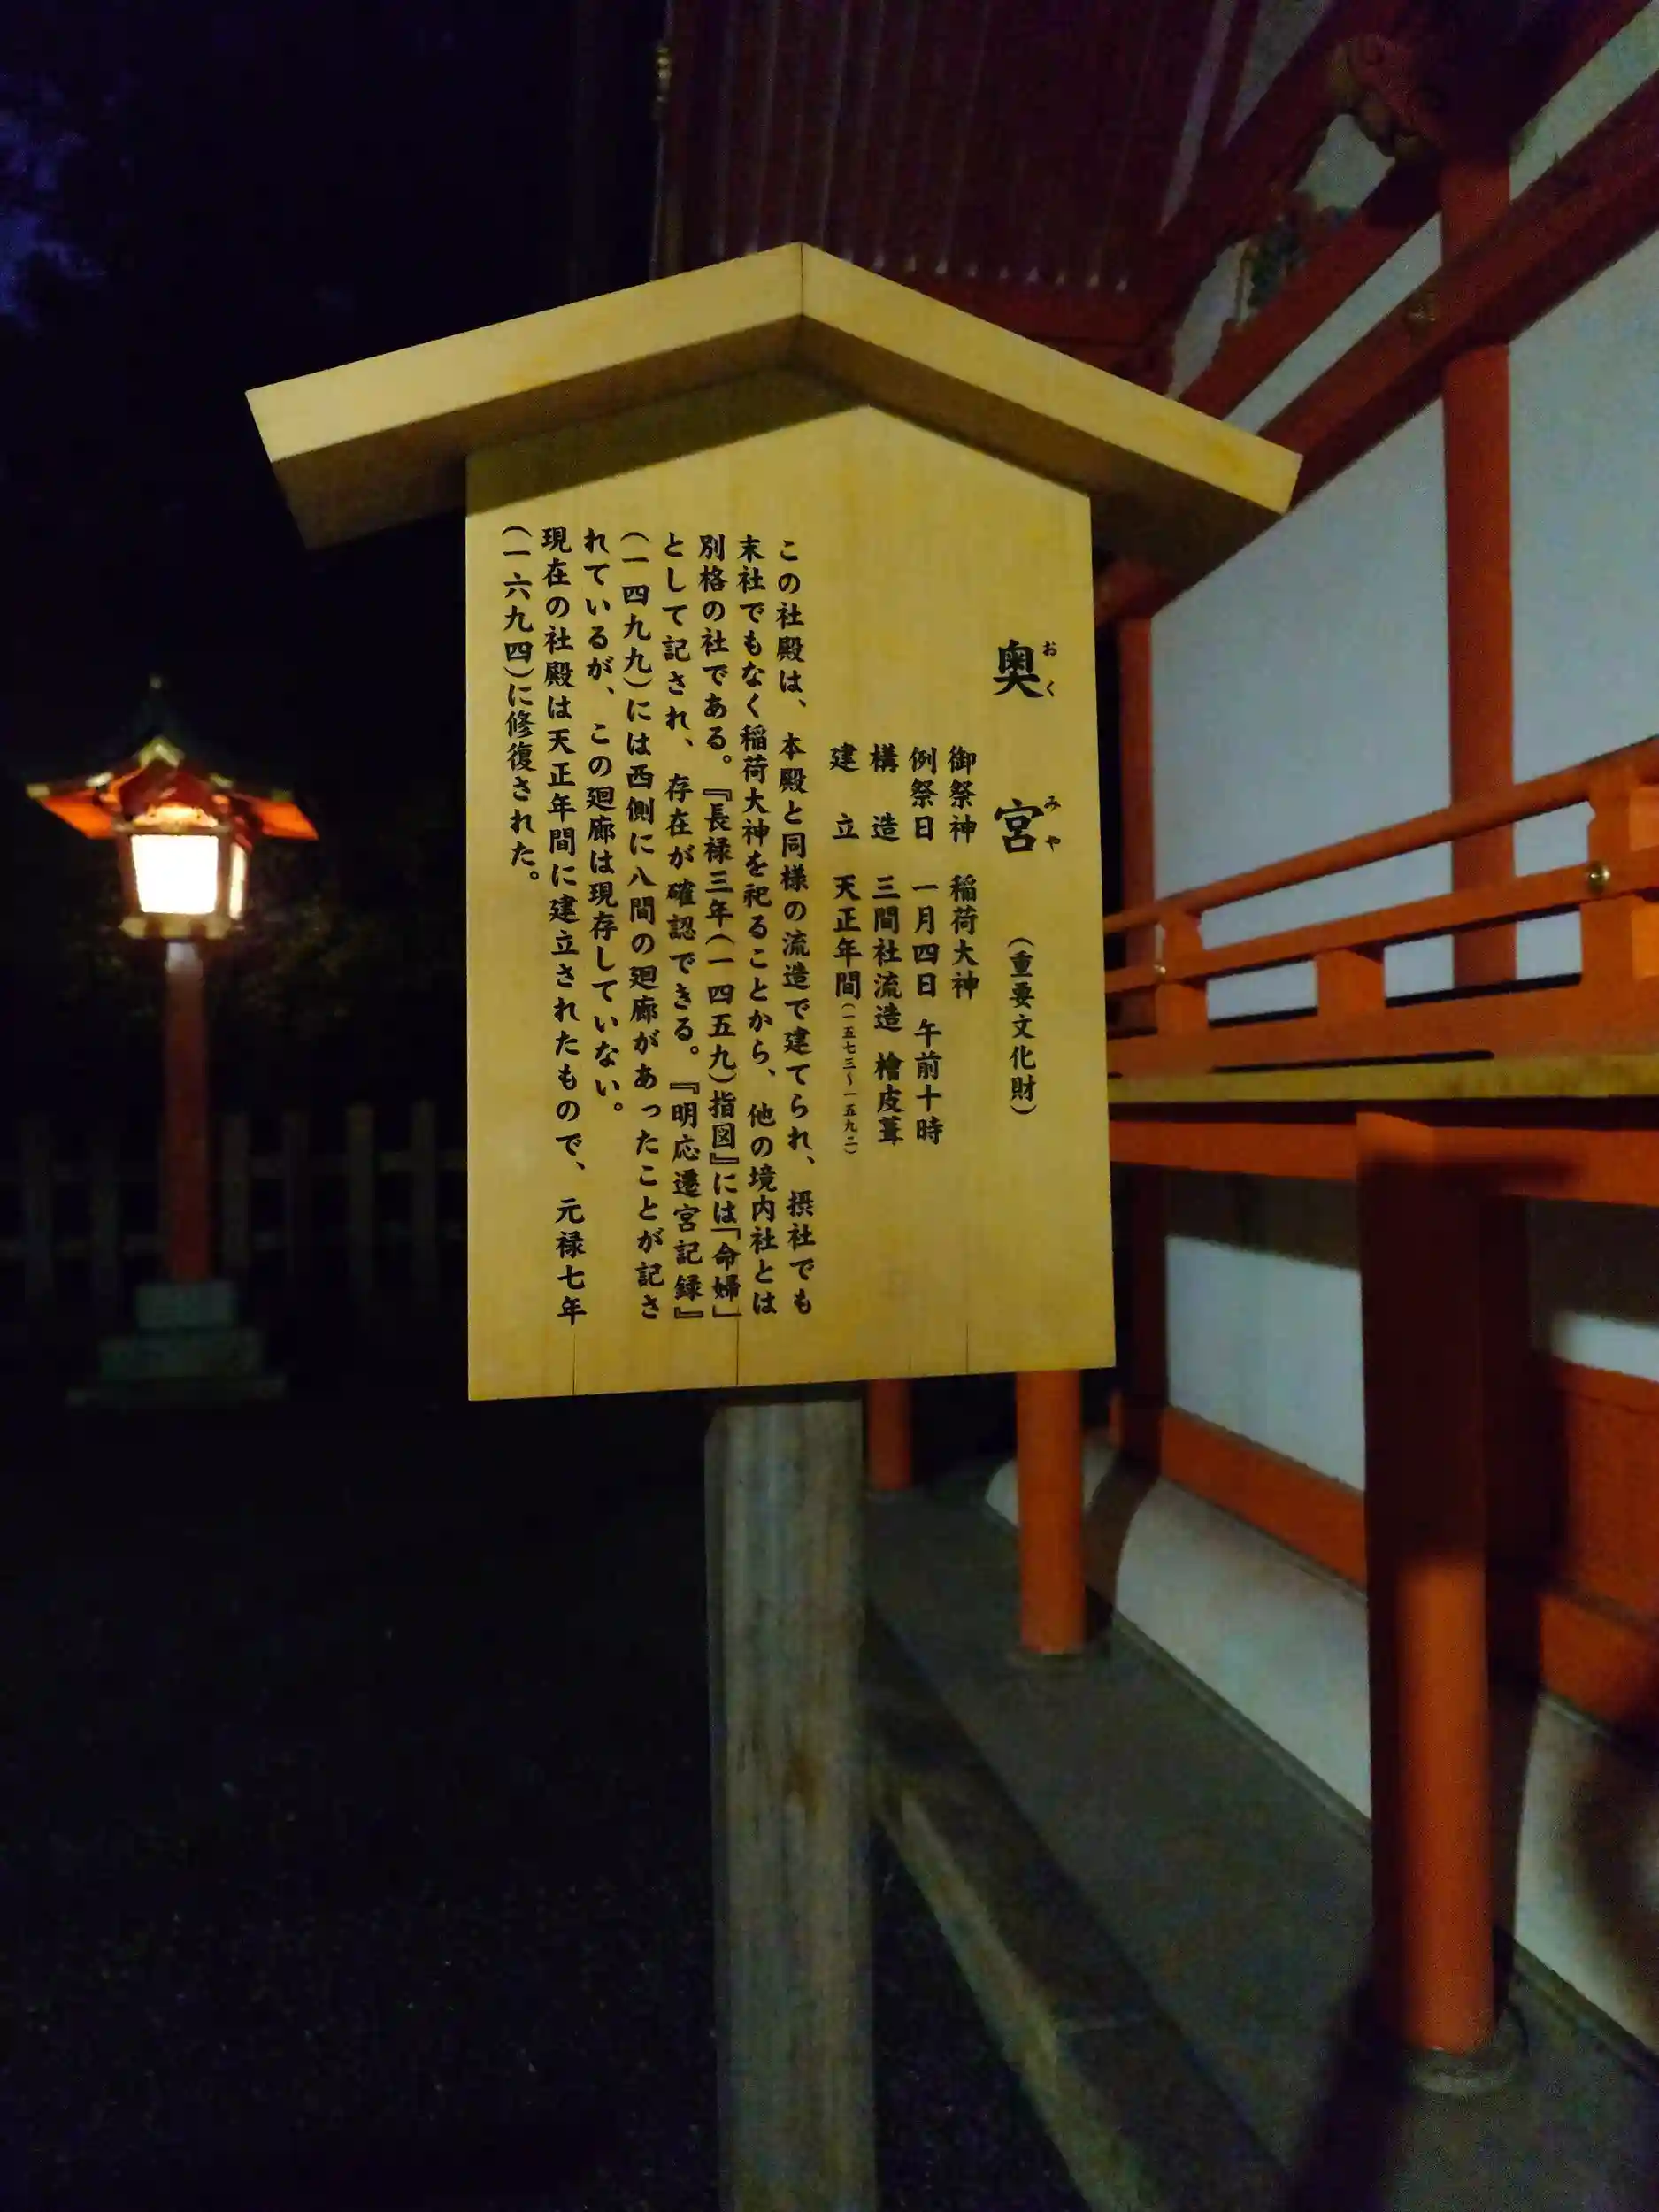 奥宮(重要文化財)
おくみや
御祭神 稲荷大神
例祭日 一月四日 午前十時
構造 三間社流造 檜皮葺
建立 天正年間(一五七三~一五九二)
この社殿は、本殿と同様の流造で建てられ、摂社でも
末社でもなく稲荷大神を祀ることから、他の境内社とは
別格の社である。『長禄三年(一四五九)指図』には「命婦」
として記され、存在が確認できる。『明応遷宮記録』
(一四九九)には西側に八間の廻廊があったことが記さ
れているが、この廻廊は現存していない。
現在の社殿は天正年間に建立されたもので、元禄七年
(一六九四)に修復された。